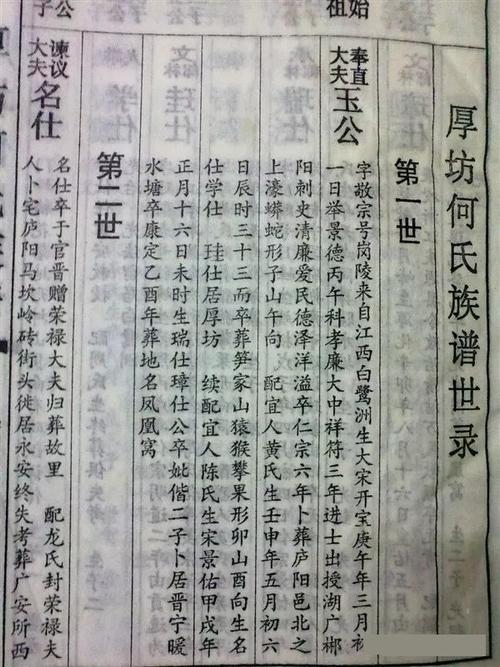 厚坊何氏族谱世录
第一世
奉直大夫玉公
字敬宗号岗陵来自江西白鹭洲生大宋开宝庚午年三月初
一日举景德丙午科孝廉大中祥符三年进士出授湖广郴
阳刺史清廉爱民德泽洋溢卒仁宗六年卜葬庐阳邑北之
上濠蟒蛇形子山午向 配宜人黄氏生壬申年五月初六
日辰时三十三而卒葬笋家山猿猴攀果形卯山酉向生名
仕学仕 珪仕居厚坊 续配宜人陈氏生宋景佑甲戌年
正月十六日未时生瑞仕璋仕公卒妣偕二子卜居晋宁暖
水塘卒康定乙酉年葬地名凤凰窝
第二世
谏议大夫名仕
名仕卒于官晋赠荣禄大夫归葬故里 配龙氏封荣禄夫
人卜宅庐阳马坎岭砖街头徙居永安终失考葬广安所西